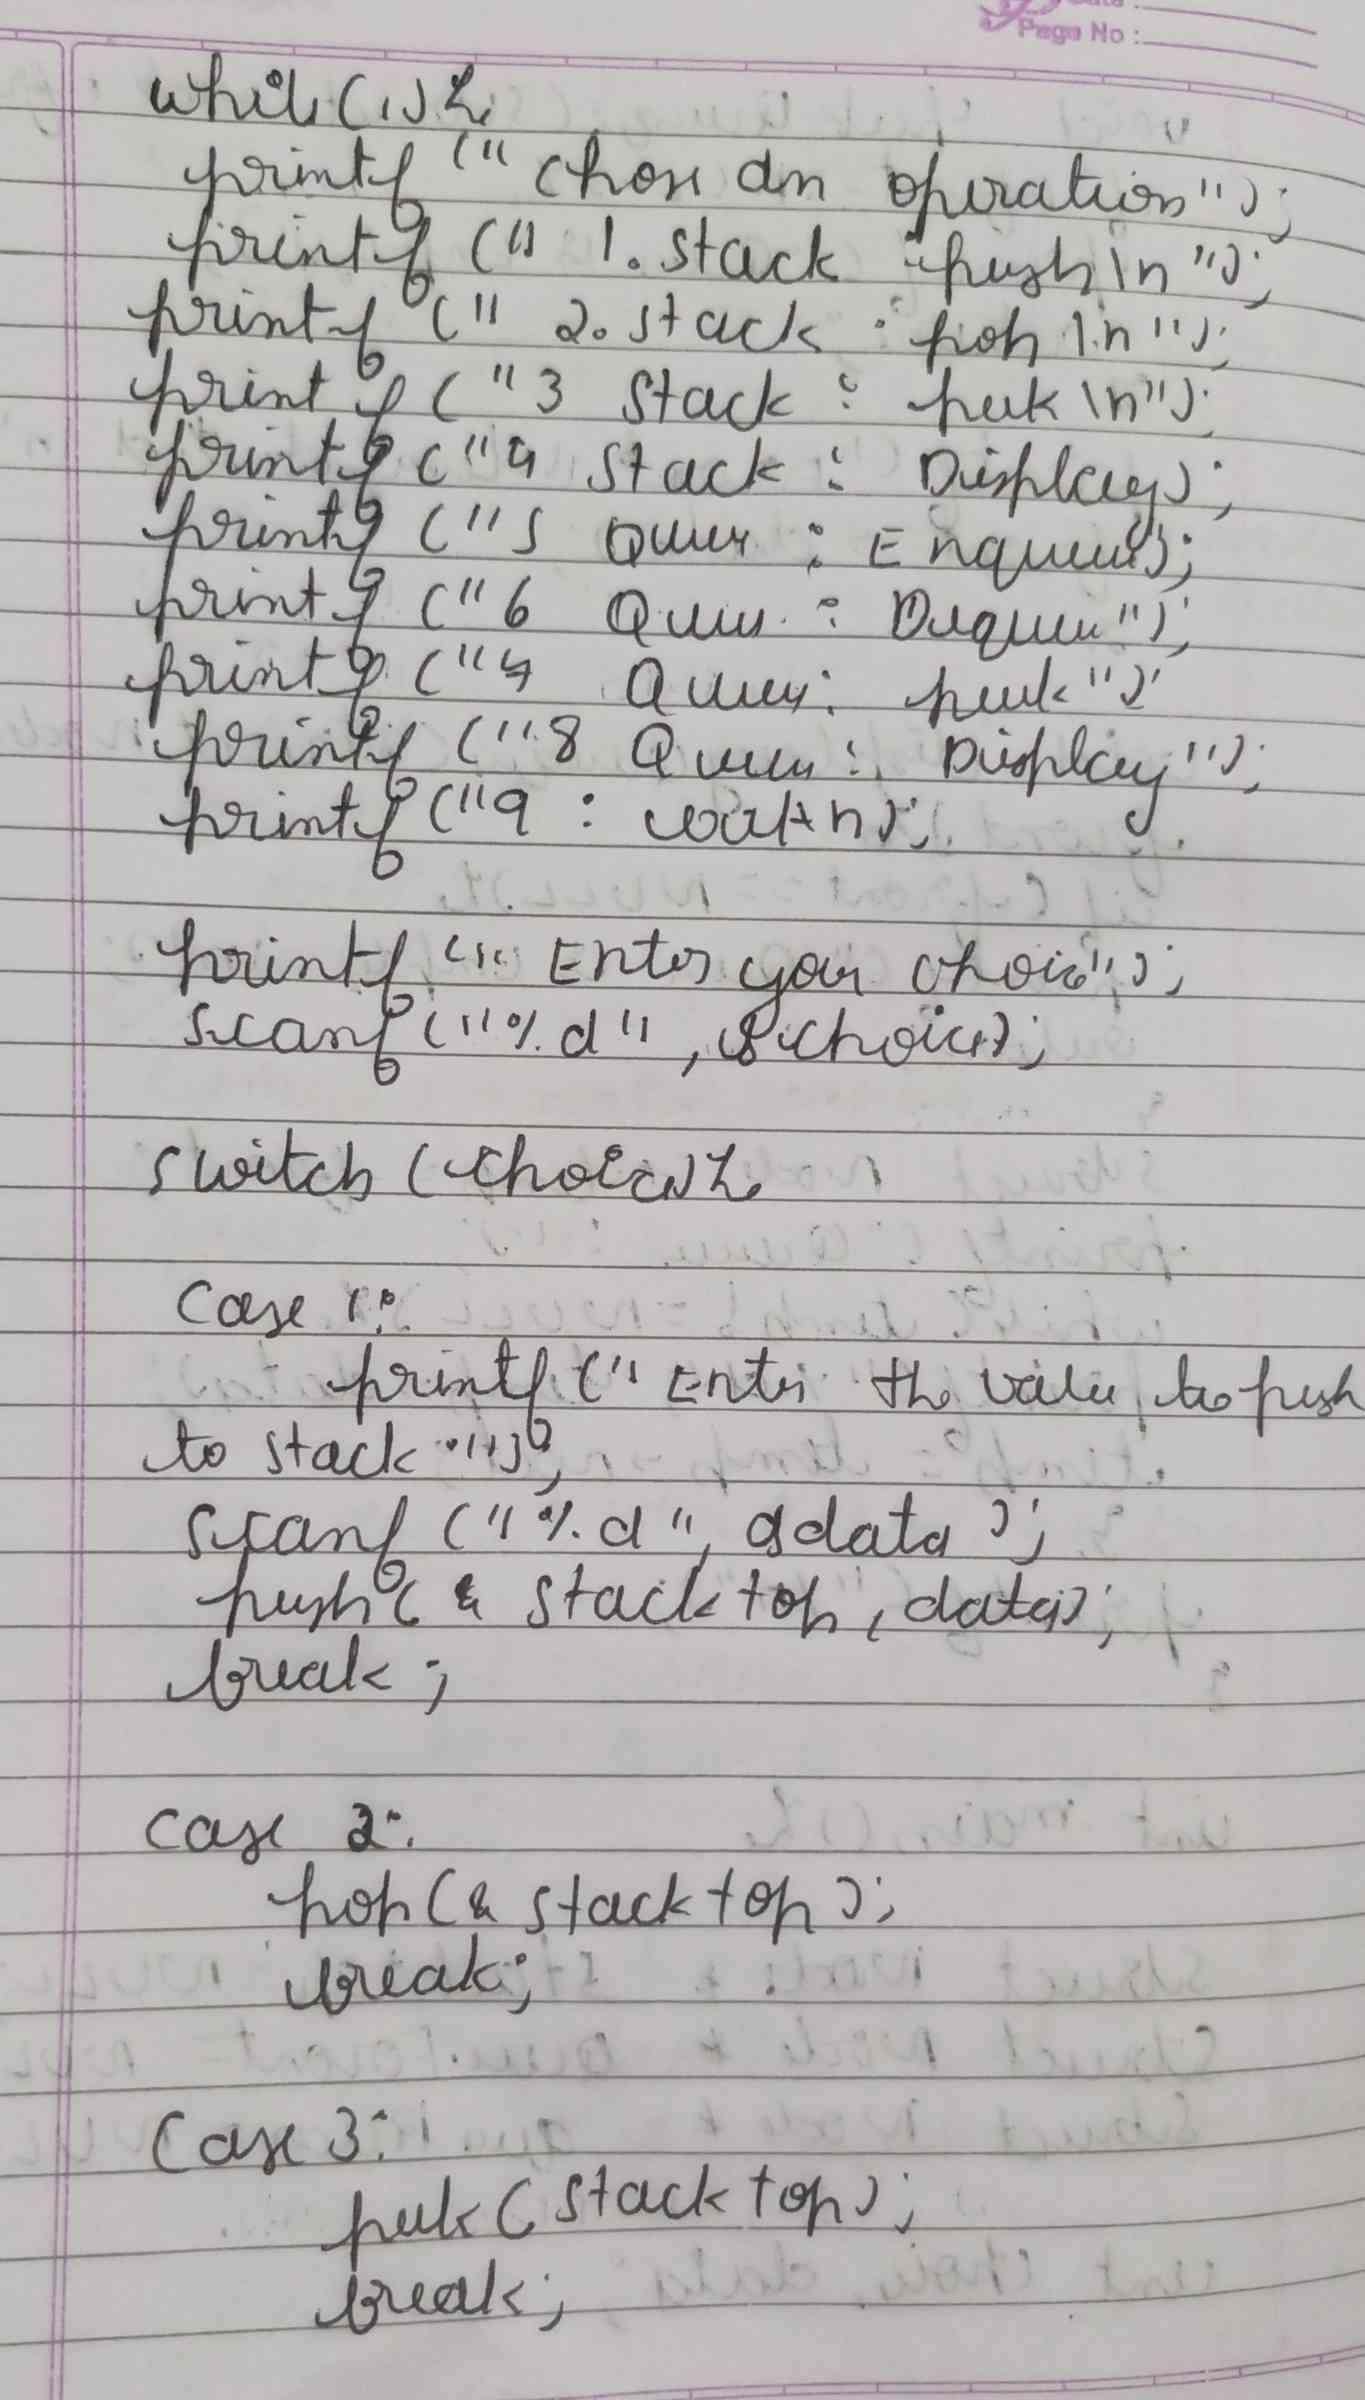 Page No :
while(1){
printf ("Chose an operation");
printf (" 1. Stack : push\n");
printf (" 2. Stack : pop \n");
printf ("3 Stack : peek \n");
printf ("4 Stack : Display);
printf ("5 Queue : Enqueue");
printf ("6 Queue : Dequeue");
printf ("7 Queue : peek")
printf ("8 Queue : Display");
printf ("9 :
printf ("Enter your choice");
scanf ("%d", &choice);
switch (choice){
Case 1:
printf (" Enter the value to push
to stack :");
scanf ("%d", &data );
push( & stack top, data);
break ;
Case 2:
pop(& stack top );
break;
Case 3:
peek ( stack top);
break;